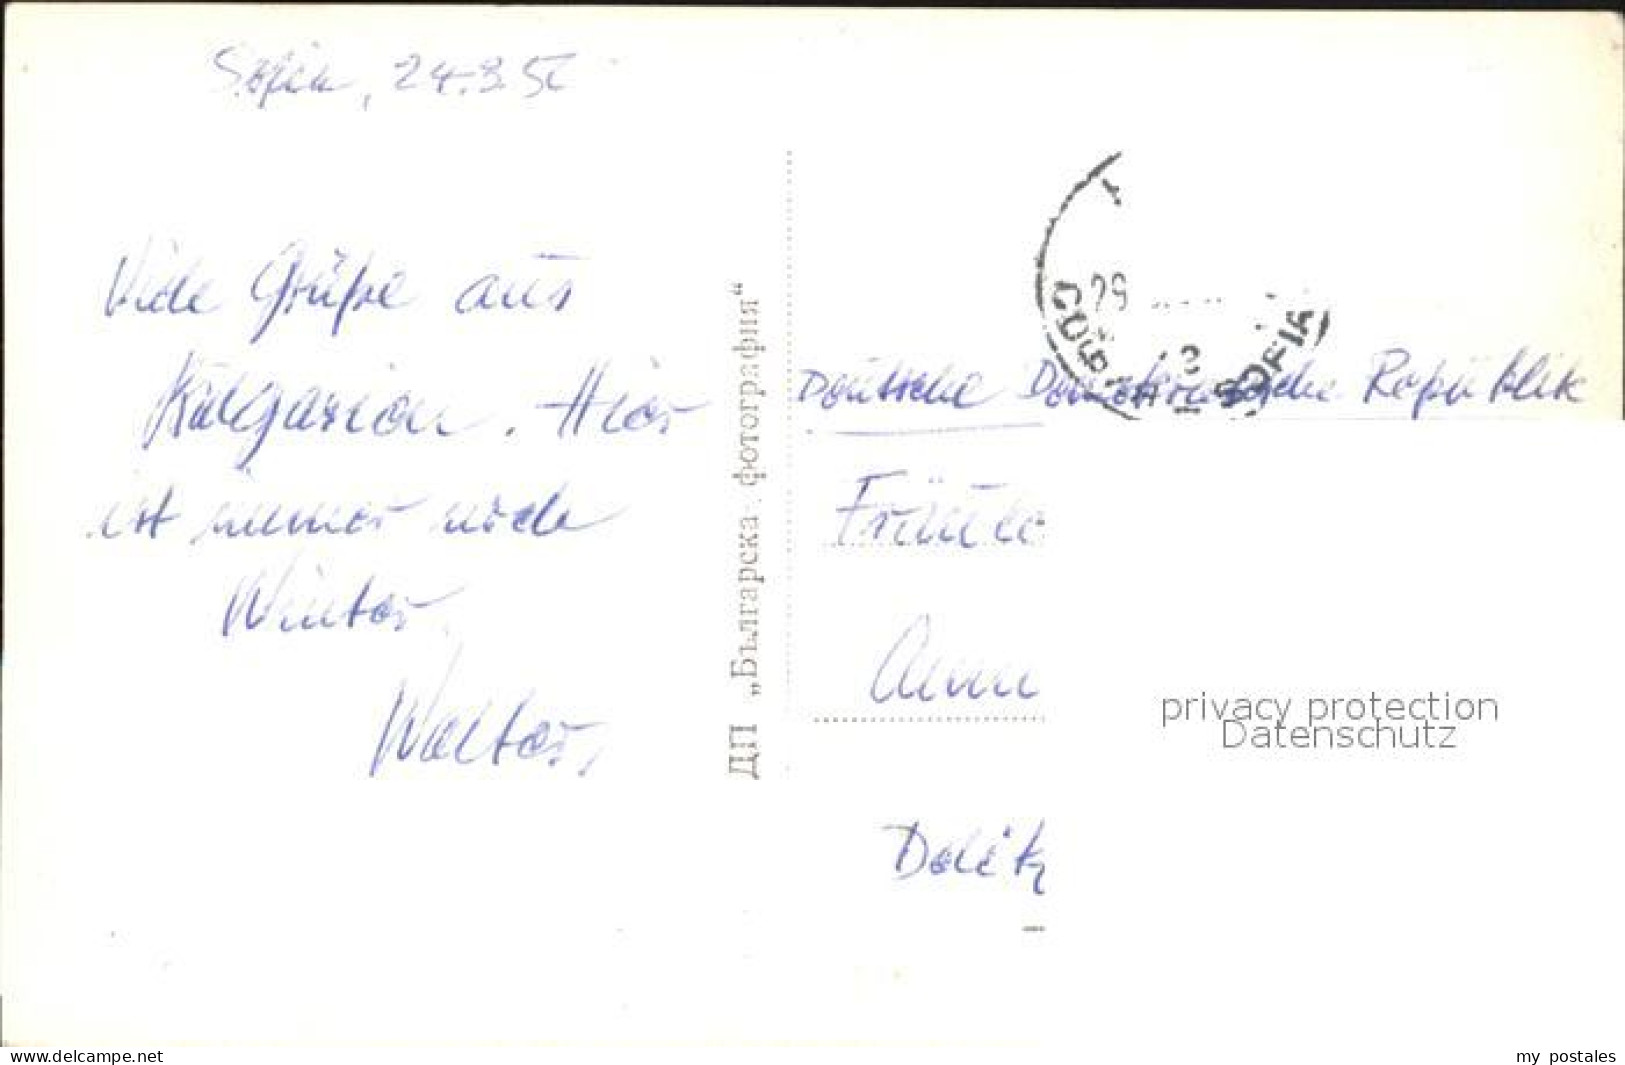 Sofia, 24.3.56
Viele Grüße aus
Bulgarien. Hier
ist immer noch
Winter
Walter
ДП „Българска фотография“
SOFIA
Deutsche Demokratische Republik
Fräule
Dölitz
privacy protection
Datenschutz
www.delcampe.net
my_postales